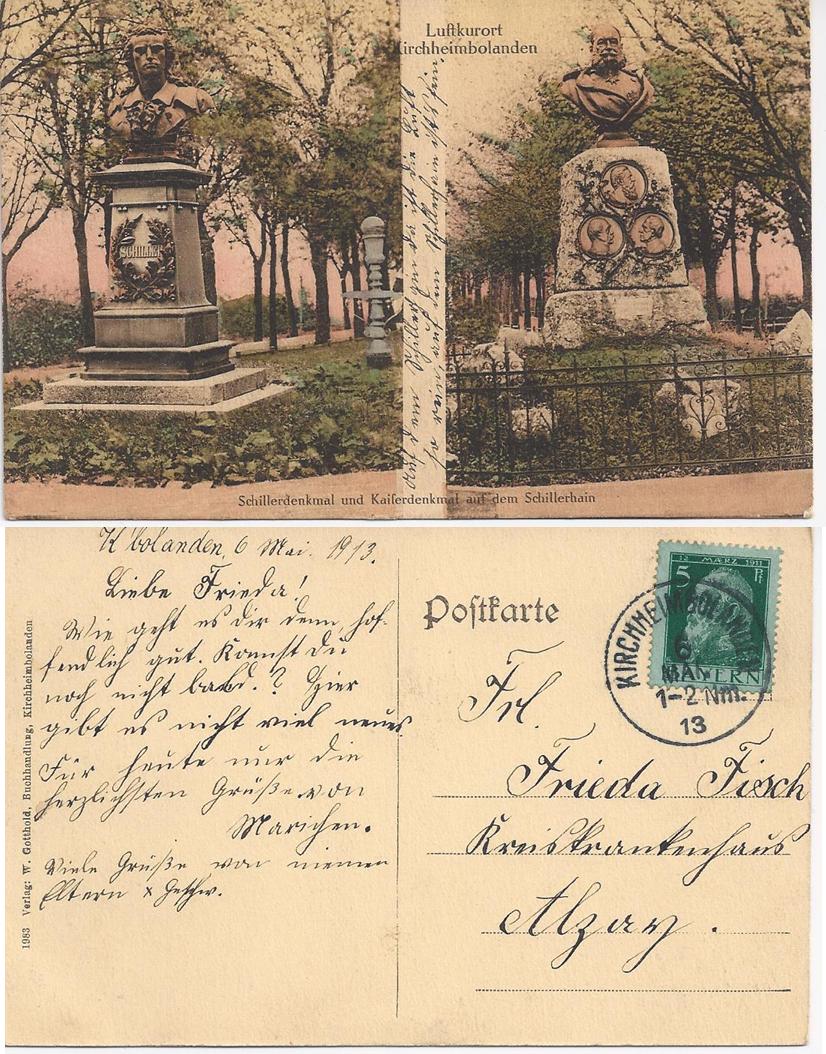 Luftkurort
Kirchheimbolanden
SCHILLER
Auf dem Schillerhain da ist die Luft
so rein, auf dem Schillerhain ist fein.
Schillerdenkmal und Kaiserdenkmal auf dem Schillerhain
K'bolanden, 6 Mai. 1913.
Liebe Frieda!
Wie geht es dir denn hof-
fendlich gut. Kommst du
noch nicht bald.? Hier
gibt es nicht viel neues
Für heute nur die
herzlichsten Grüße von
Mariechen.
Viele Grüße von meinen
Eltern & Geschw.
1983 Verlag: W. Gotthold, Buchhandlung, Kirchheimbolanden
Postkarte
12 MÆRZ 1911
5 Pf
BAYERN
KIRCHHEIMBOLANDEN
6
MAI
1-2 Nm.
13
Frl.
Frieda Fisch
Kreiskrankenhaus
Alzey.